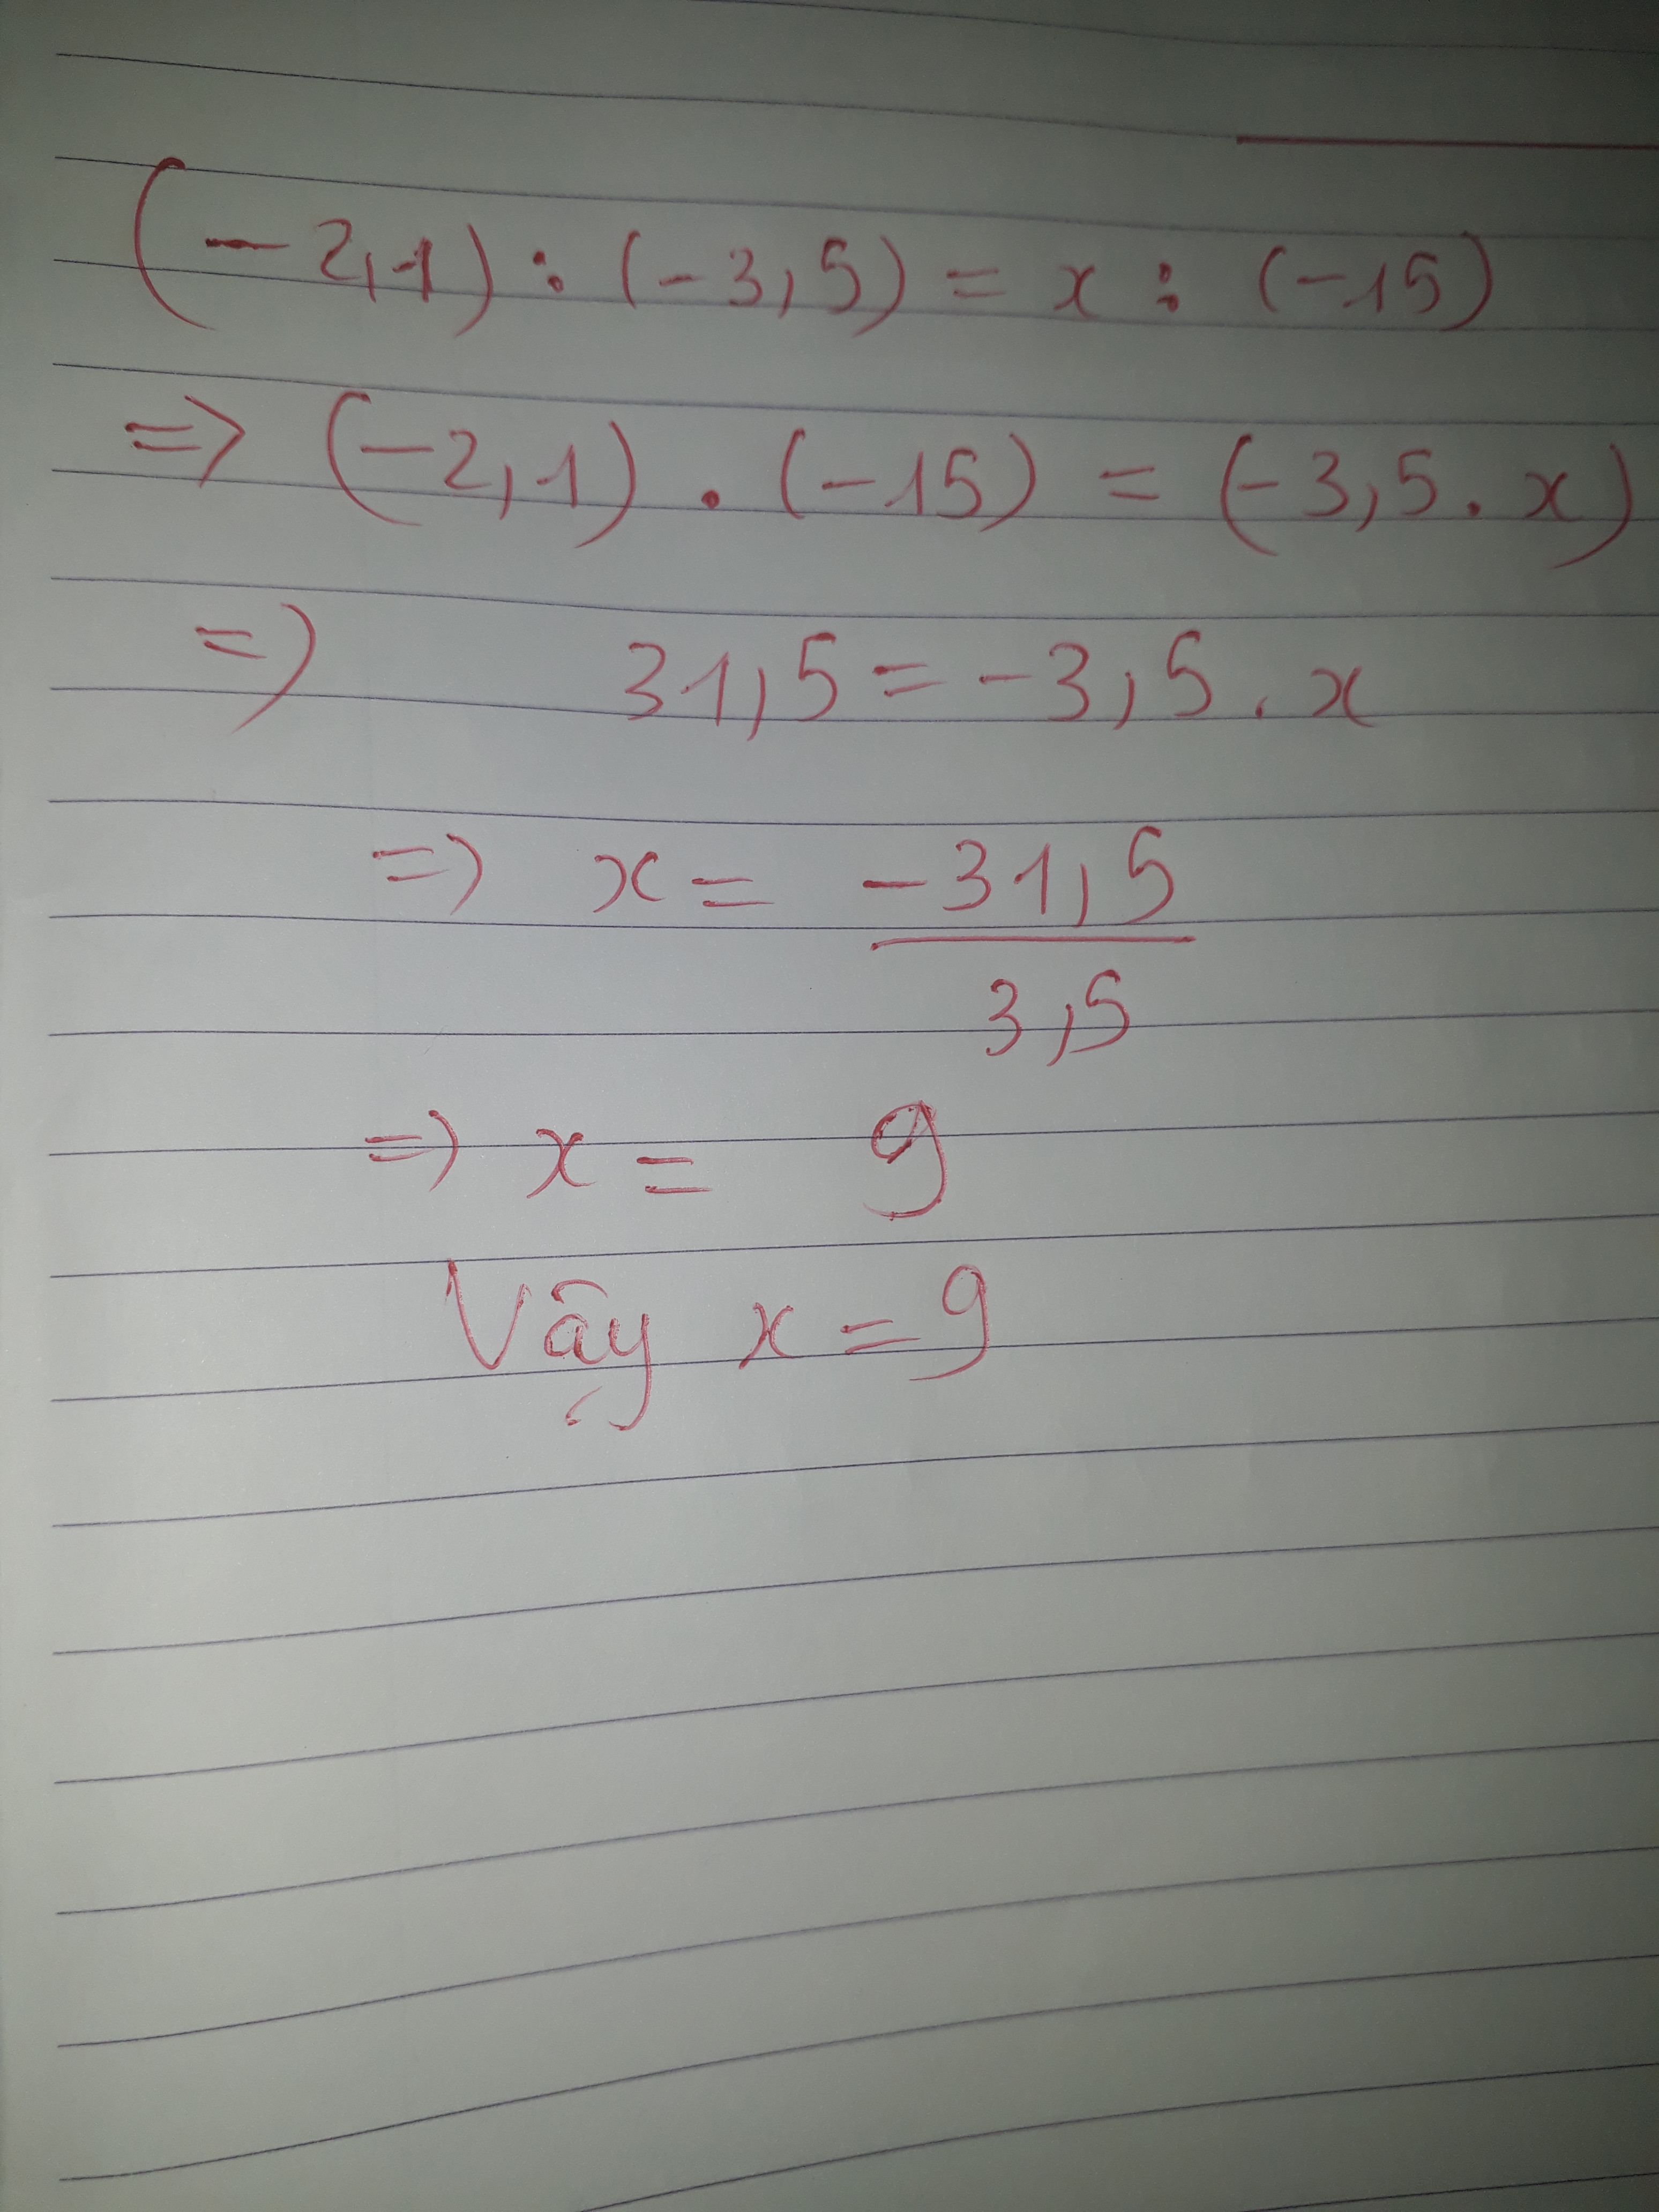 (-2,1) : (-3,5) = x : (-15)
=> (-2,1) . (-15) = (-3,5 . x)
=> 31,5 = -3,5 . x
=> x = -31,5
3,5
=> x = 9
Vậy x = 9